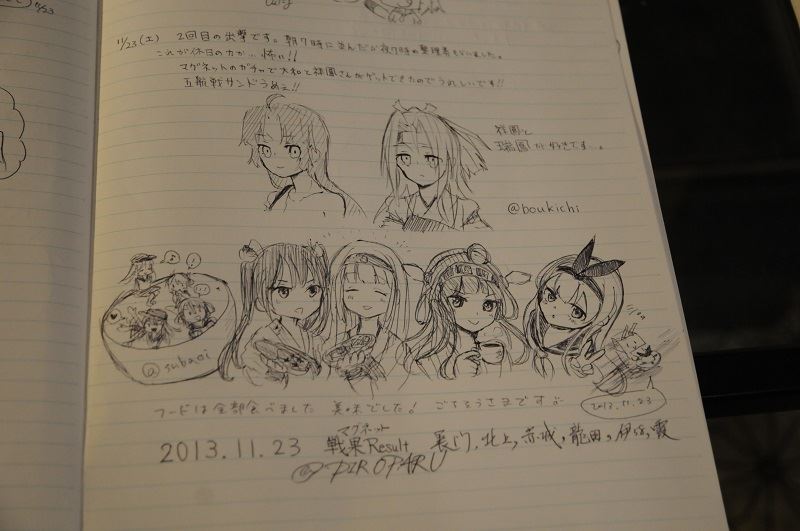 11/23(土) 2回目の出撃です。朝7時に並んだが夜7時の整理券もらいました。
これが休日の力か… 怖い!!
マグネットのガチャで大和と祥鳳さんがゲットできたのでうれしいです!!
五航戦サンドうめぇ!!
祥鳳と
瑞鳳が好きです…。
@boukichi
@subaoi
2013.11.23
フードは全部食べました 美味でした! ごちそうさまです
マグネット
2013.11.23 戦果Result 長門, 北上, 赤城, 龍田, 伊58, 霞
@PIROPARU